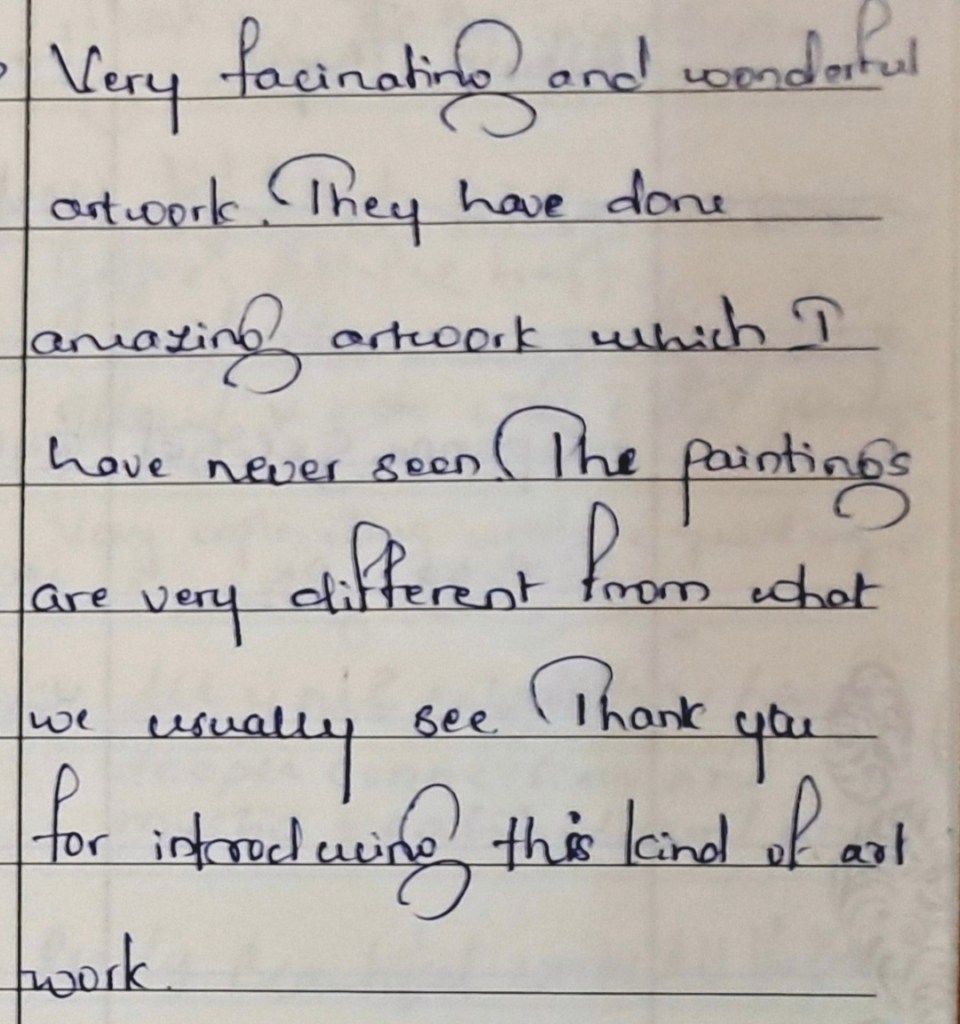 Very facinating and wonderful
artwork. They have done
amazing artwork which I
have never seen. The paintings
are very different from what
we usually see Thank you
for introducing this kind of art
work.